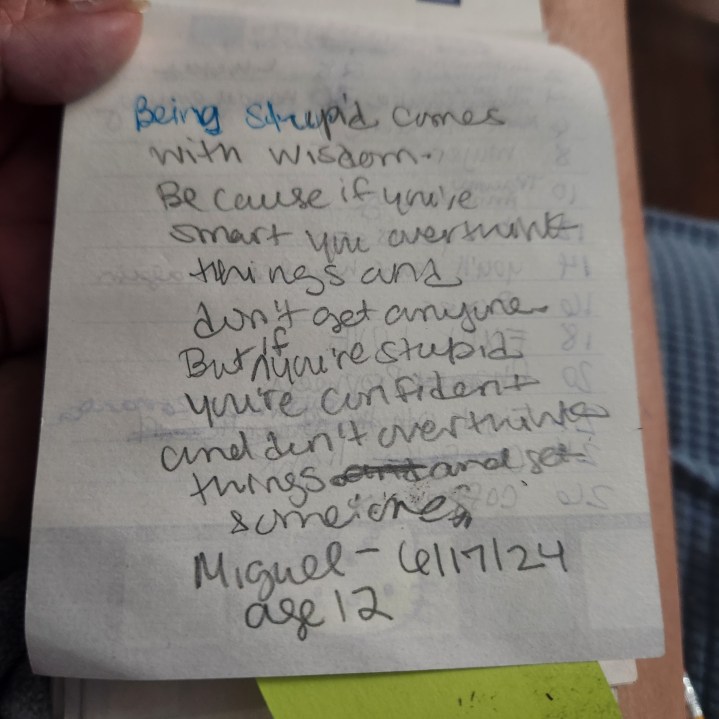 Being stupid comes
with wisdom.
Because if you're
smart you overthink
things and
don't get anyone.
But if you're stupid
you're confident
and don't overthink
things and get
someone.
Miguel - 6/17/24
age 12